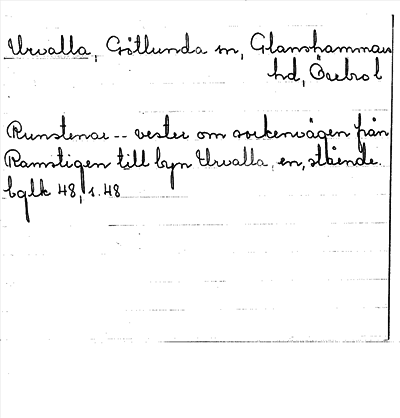 Urvalla, Götlunda sn, Glanshammars
hd, Örebro l
Runstenar -- vester om sockenvägen från
Ramstigen till byn Urvalla, en, stående.
bglk 48, s. 48